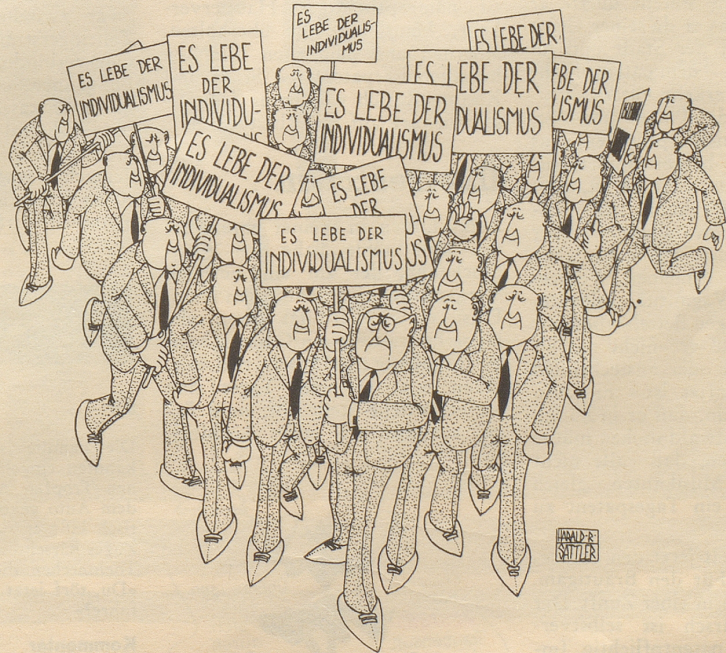 ES
LEBE DER
INDIVIDUALIS-
MUS
ES LEBE DER
INDIVIDUALISMUS
ES LEBE
DER
INDIVIDU-
ES LEBE DER
ES LEBE DER
DUALISMUS
EBE DER
USMUS
ES LEBE DER
INDIVIDUALISMUS
ES LEBE DER
INDIVIDUALISMUS
ES LEBE
DER
US
ES LEBE DER
INDIVIDUALISMUS
HARALD-R-
SATTLER